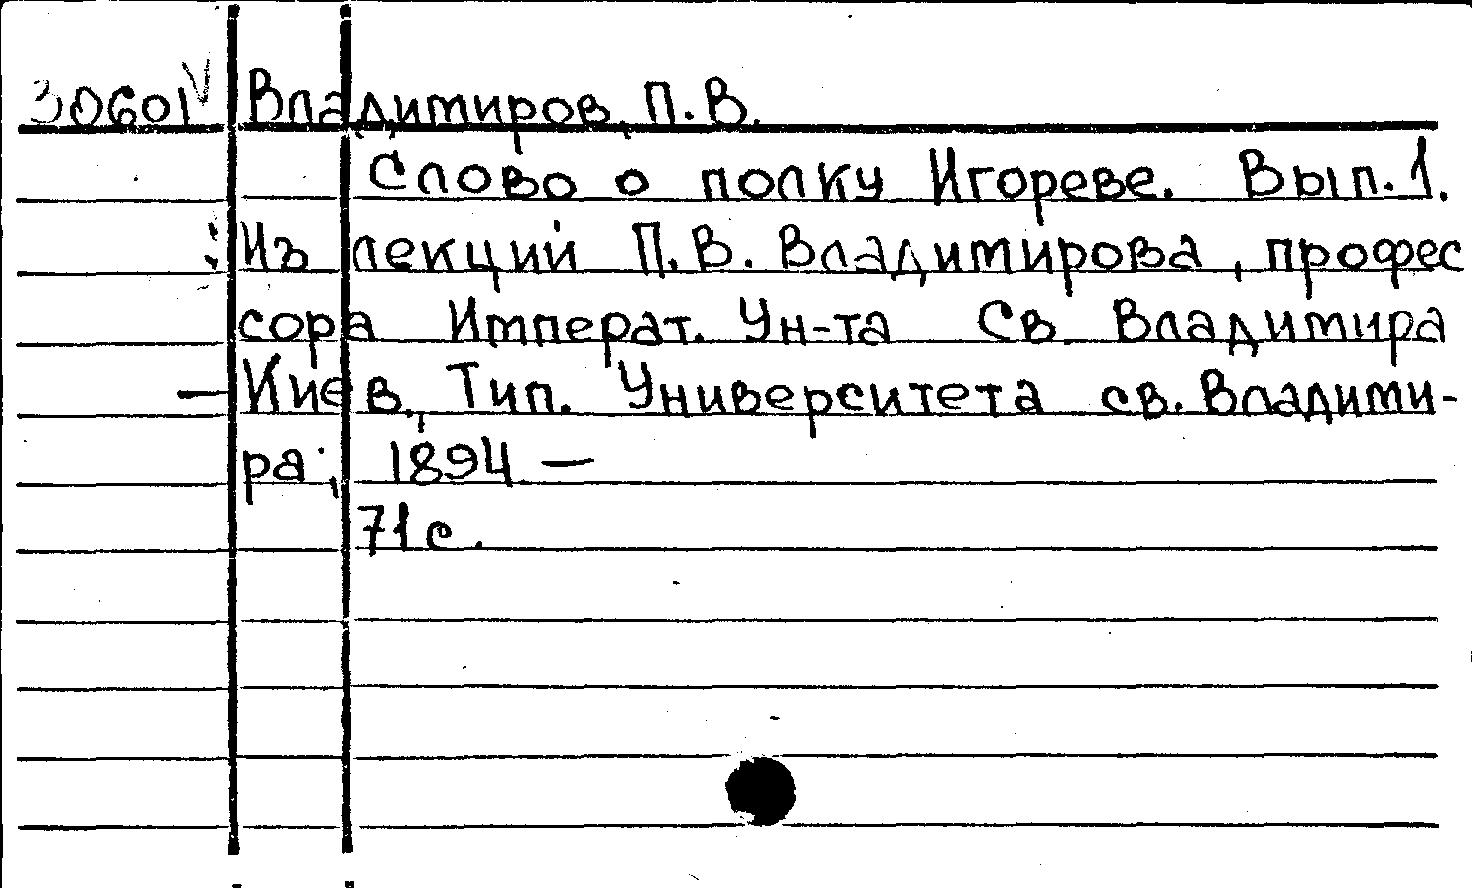 30601 V Владимиров, П.В.
Слово о полку Игореве. Вып. 1.
: Изъ лекций П.В. Владимирова, профес
сора Императ. Ун-та Св. Владимира
— Киев., Тип. Университета св. Владими-
ра; 1894 —
71 с.